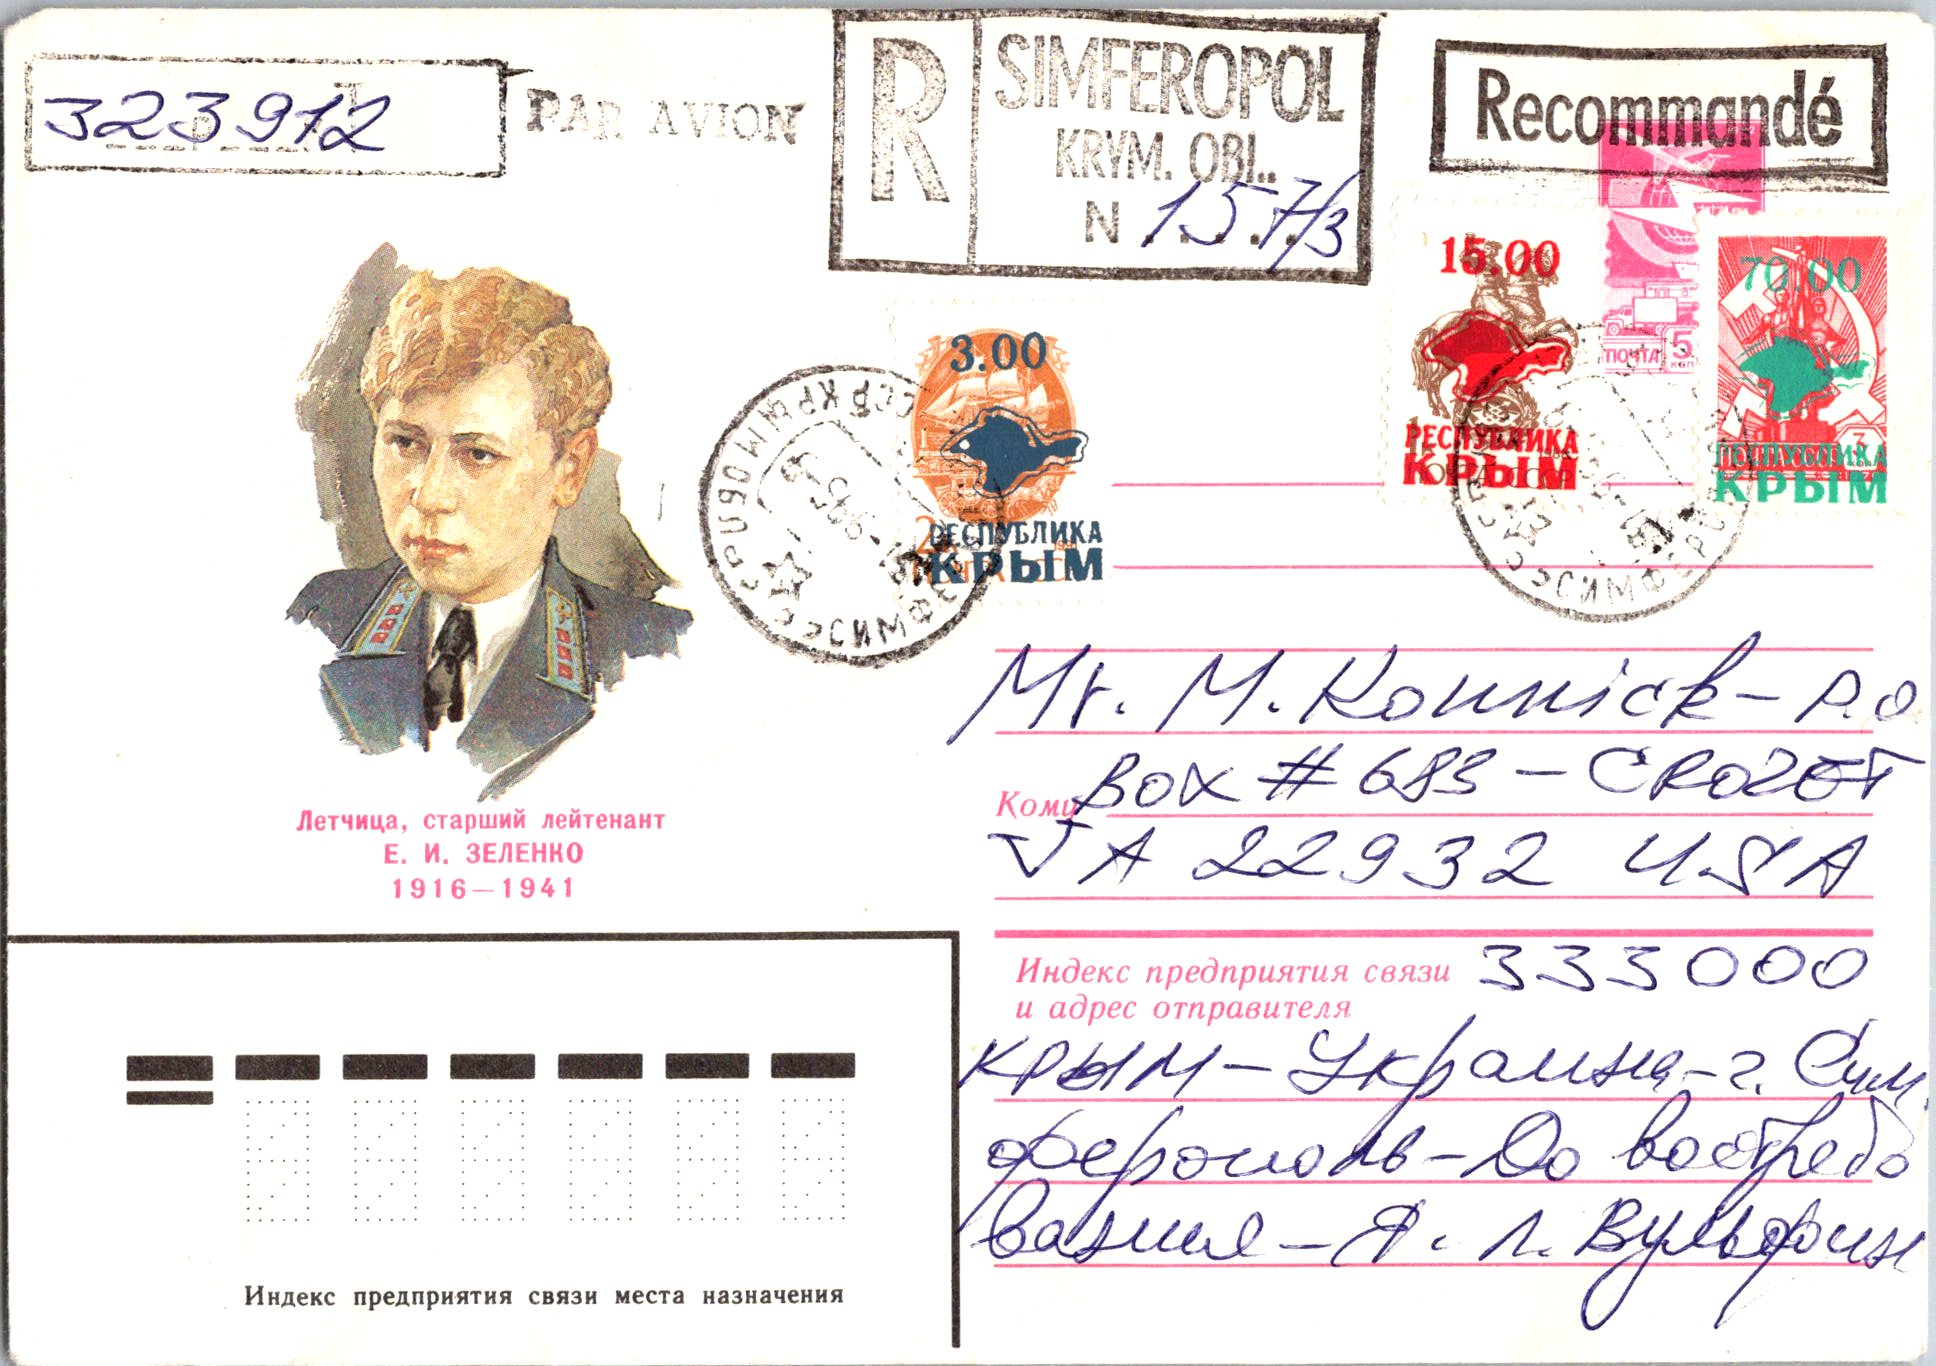 323912
PAR AVION
R
SIMFEROPOL
KRYM. OBL.
N 157/3
Recommandé
3.00
РЕСПУБЛИКА
КРЫМ
15.00
РЕСПУБЛИКА
КРЫМ
ПОЧТА 5
коп
70.00
РЕСПУБЛИКА
КРЫМ
СИМФЕРО
Летчица, старший лейтенант
Е. И. ЗЕЛЕНКО
1916—1941
Mr. M. Konnick - P.O
Кому BOX # 683 - CROZET
VA 22932 USA
Индекс предприятия связи 333000
и адрес отправителя
КРЫМ - Украина - г. Сим
ферополь - До востребо
вания - Я. Л. Вульфин
Индекс предприятия связи места назначения